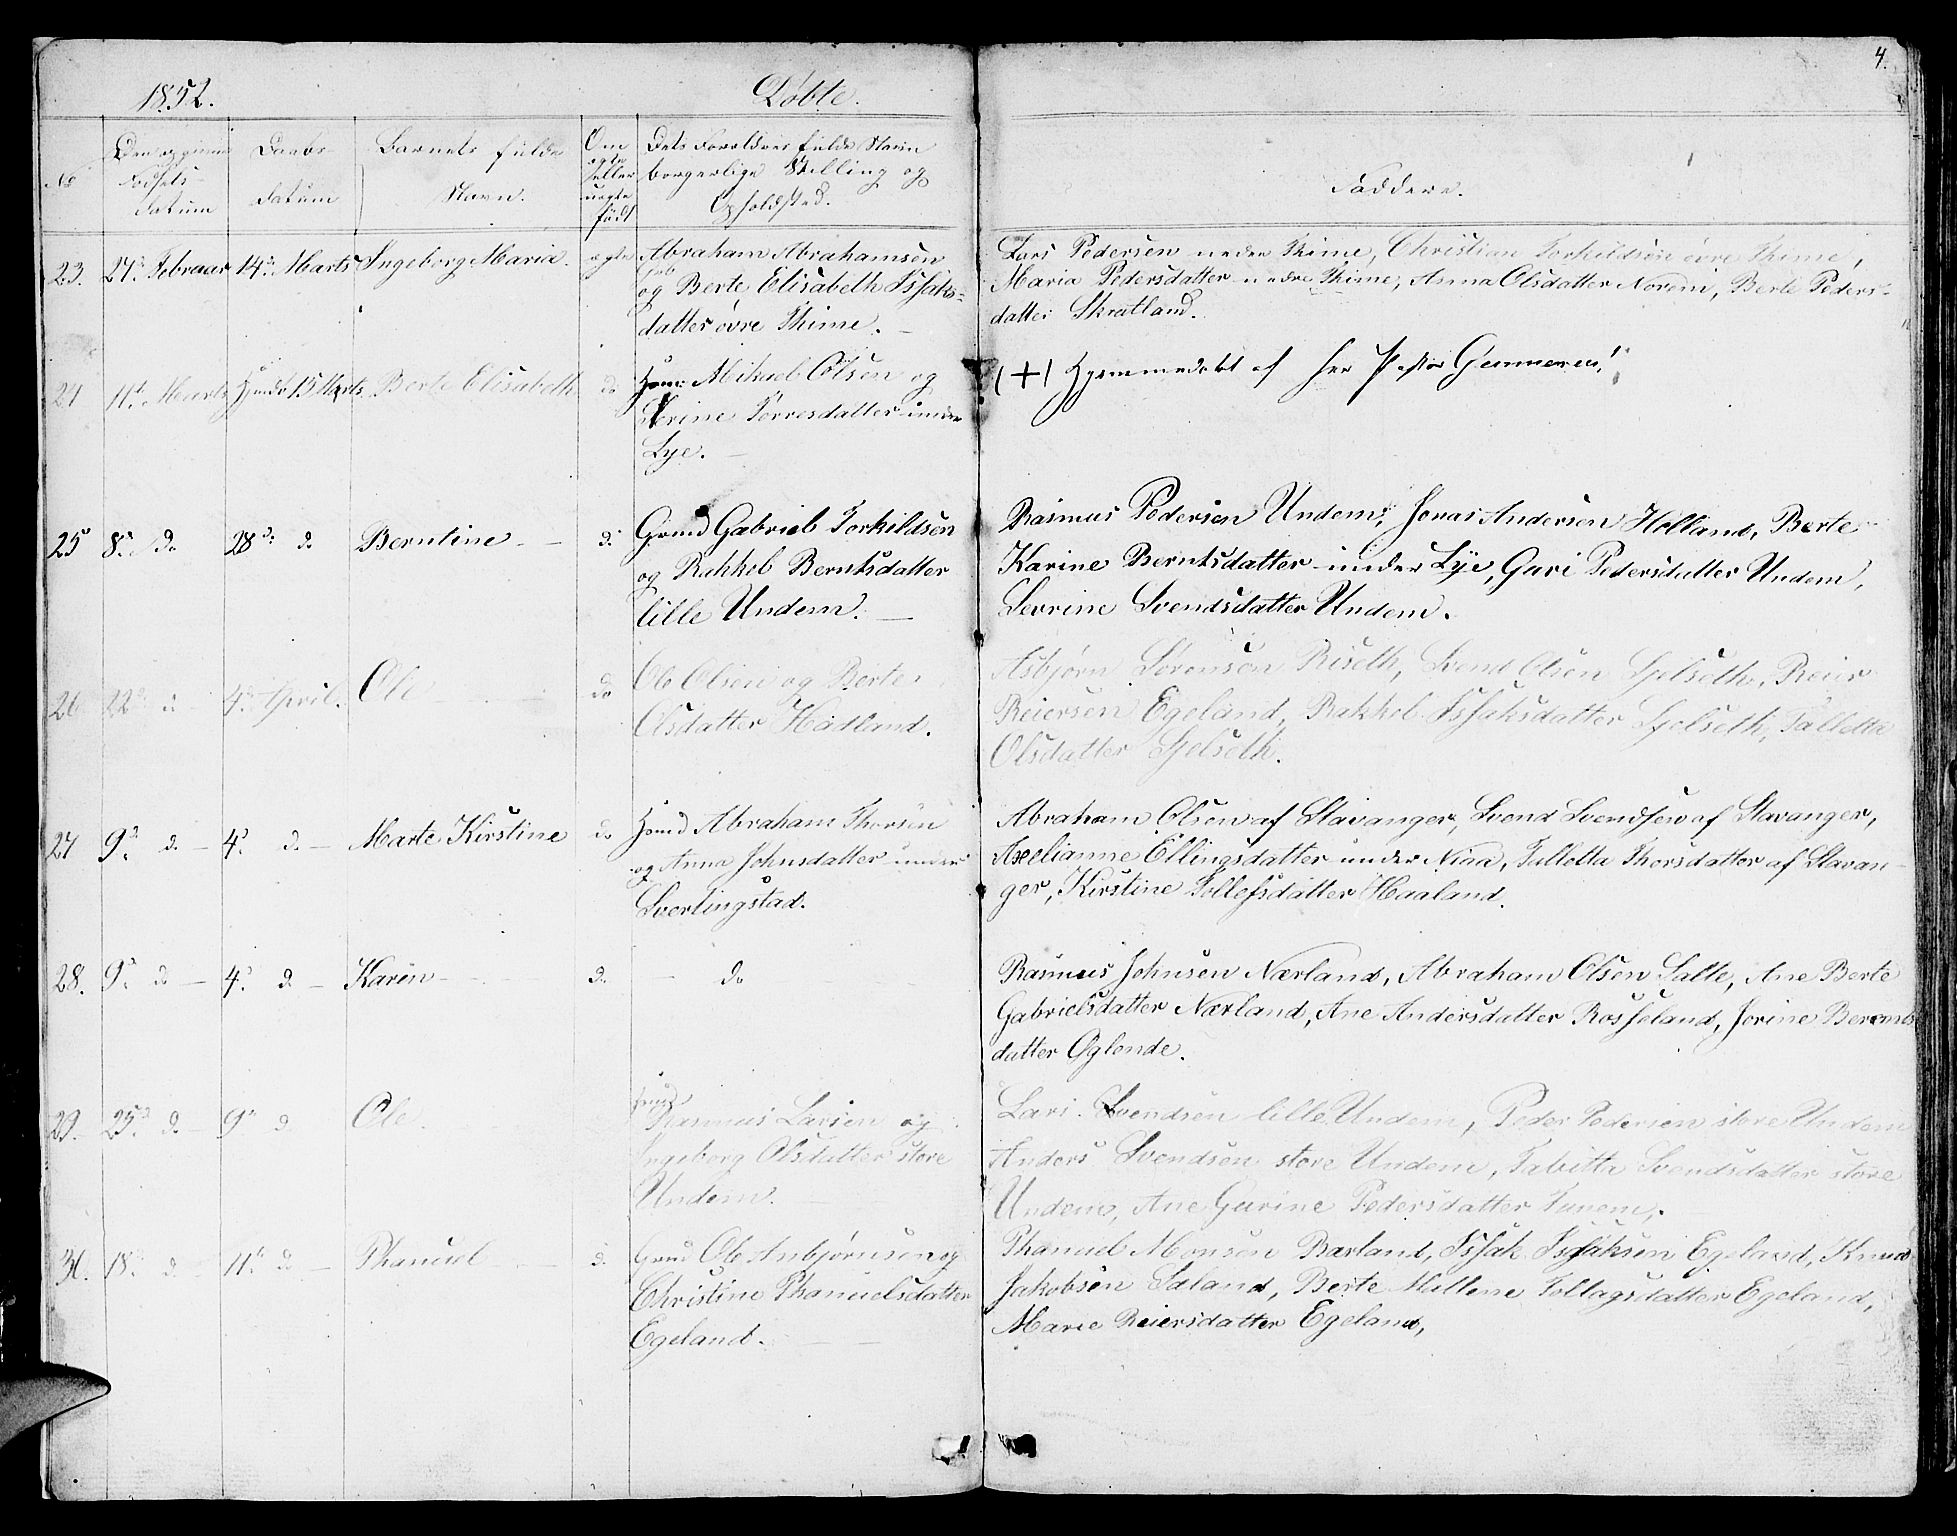 4.
1852. Døbte.
No
Datum
Daabs Datum
Barnets fulde Navn.
Om ægte eller uægte født
Dets Forældres fulde Navn borgerlige Stilling og Opholdsted.
Faddere.
23. 27de Februar 14de Marts Ingeborg Maria. ægte
Abraham Abrahamsen
og Berte Elisabeth Isfaks-
datter øvre Thime. —
Lars Pedersen nedre Thime, Christian Torkildsen øvre Thime,
Maria Pedersdatter nedre Thime, Anna Olsdatter Norem, Berte Peders-
datter Skratland.
24 11te Marts Hjemdøbt 15 Marts Berte Elisabeth do
Mikael Olsen og
Serine Torresdatter under
Lye. —
(+) Hjemmedøbt af Her Pastor
25 8de do 28de do Berntine — do
Gmd Gabriel Torkildsen
og Rakkel Berntsdatter
lille Undem. —
Rasmus Pedersen Undem, Jonas Andersen Holland, Berte
Karine Berntsdatter under Lye, Guri Pedersdatter Undem,
Sevrine Svendsdatter Undem.
26 22de do 4de April. Ole do
Ole Olsen og Berte
Olsdatter Hadland.
Asbjørn Sørensen Riseth, Svend Olsen Sjelseth, Reier
Reiersen Egeland, Rakkel Isfaksdatter Sjelseth, Talletta
Olsdatter Sjelseth.
27 9de do — 4de do — Marte Kirstine do
Hmd Abraham Thorsen
og Anna Johnsdatter under
Sverlingstad.
Abraham Olsen af Stavanger, Svend Svendsen af Stavanger,
Axelianne Ellingsdatter under Niaa, Talletta Thorsdatter af Stavan-
ger, Kirstine Tollefsdatter Haaland.
28. 9de do — 4de do — Karen — do — do
Rasmus Johnsen Nærland, Abraham Olsen Salte, Ane Berte
Gabrielsdatter Nærland, Ane Andersdatter Rosseland, Jorine Berents
datter Oglende.
29. 25de do — 9de do Ole.
Rasmus Larsen og
Ingeborg Olsdatter store
Undem.
Lars Svendsen lille Undem, Peder Pedersen store Undem
Anders Svendsen store Undem, Tabitta Svendsdatter store
Undem, Ane Gurine Pedersdatter Tunem,
30. 18de do — 11te do — Phanuel — do
Gmd Ole Asbjørnsen og
Christine Phanuelsdatter
Egeland. —
Phanuel Monsen Barland, Isfak Isfaksen Egeland, Knud
Jakobsen Saland, Berte Mallene Tollagsdatter Egeland,
Marie Reiersdatter Egeland,